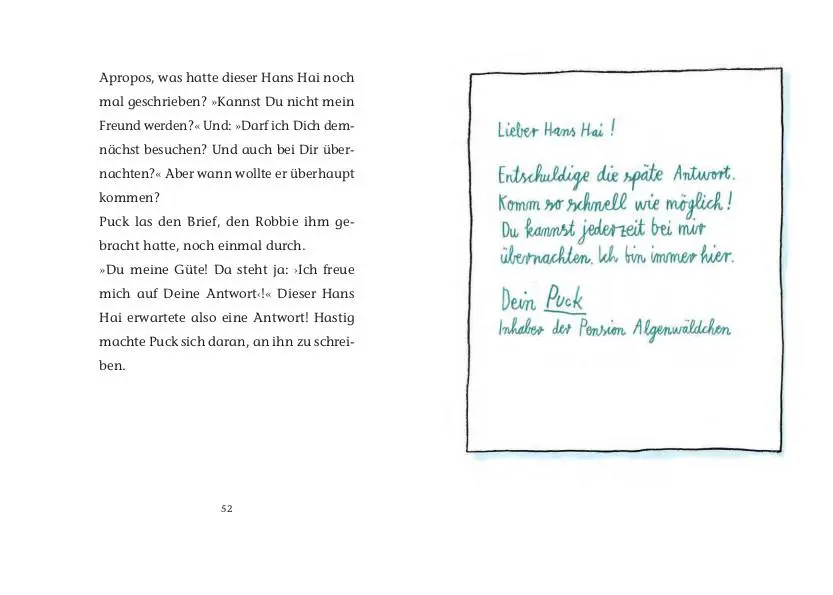 Apropos, was hatte dieser Hans Hai noch
mal geschrieben? »Kannst Du nicht mein
Freund werden?« Und: »Darf ich Dich dem-
nächst besuchen? Und auch bei Dir über-
nachten?« Aber wann wollte er überhaupt
kommen?
Puck las den Brief, den Robbie ihm ge-
bracht hatte, noch einmal durch.
»Du meine Güte! Da steht ja: ›Ich freue
mich auf Deine Antwort‹!« Dieser Hans
Hai erwartete also eine Antwort! Hastig
machte Puck sich daran, an ihn zu schrei-
ben.
52
Lieber Hans Hai!
Entschuldige die späte Antwort.
Komm so schnell wie möglich!
Du kannst jederzeit bei mir
übernachten. Ich bin immer hier.
Dein Puck
Inhaber der Pension Algenwäldchen